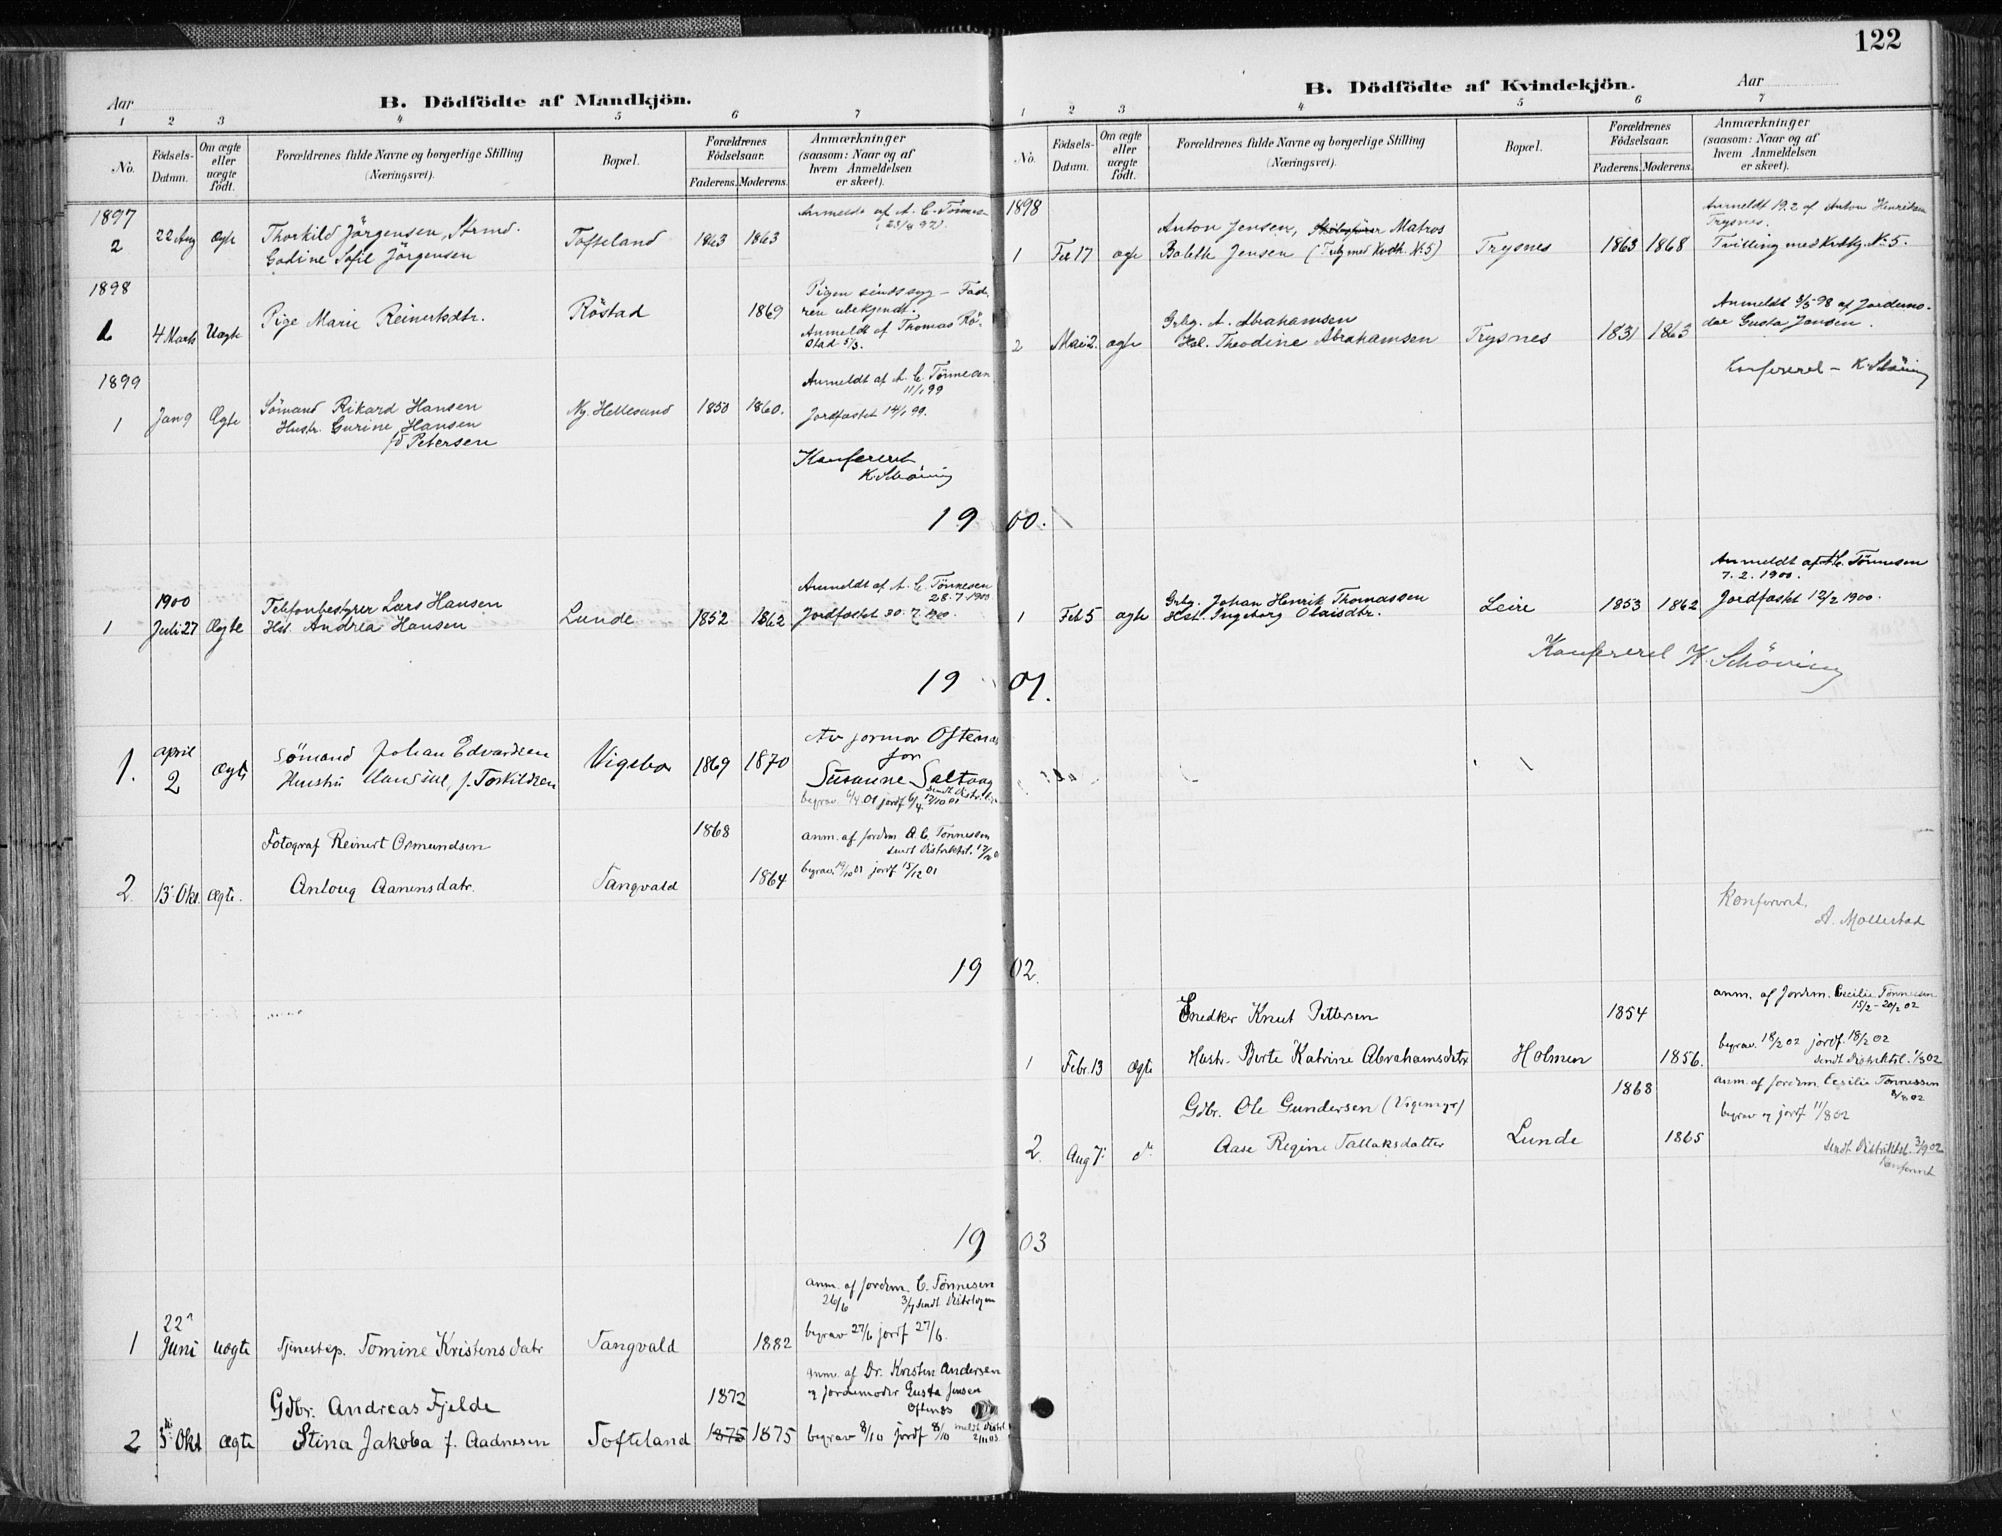 Aar
B. Dödfödte af Mandkjön.
1 2 3 4 5 6 7
No.
Födsels-Datum.
Om ægte eller uægte födt.
Forældrenes fulde Navne og borgerlige Stilling (Næringsvei).
Bopæl.
Forældrenes Födselsaar.
Faderens. Moderens.
Anmærkninger (saasom: Naar og af hvem Anmeldelsen er skeet).
1897
Anmeldt af A. C. Tönnesen
2 22 Aug Ægte Thorkild Jörgensen, Strmd. Tofteland 1863 1863
Godine Sofie Jörgensen
1898
Pigen sindssyg – Fad-
ren ubekjendt.
4 Marts Uægte Pige Marie Reinertsdtr. Röstad 1869
Anmeldt af Thomas Rö-
stad 5/3.
1899
Anmeldt af A. C. Tönnesen
11/1 99
1 Jan 9 Ægte Sömand Rikard Hansen Ny Hellesund 1850 1860.
Hustr. Gurine Hansen
f. Petersen
Jordfæstet 14/1 99.
Konfereret
K. Schöning
19
1900
1 Juli 27 Ægte Telefonbestyrer Lars Hansen Lunde 1852 1862
Hst. Andrea Hansen
Anmeldt af A. C. Tönnesen
28.7.1900
Jordfæstet 30.7.1900.
19
1. april 2 ægte Sömand Johan Edvardsen Vigebo 1869 1870
Hustru Hansine, f. Torkildsen
Av jormor Oftenæs
for
Susanne Saltvag
begrav. 6/4 01 jordf 6/4
Fotograf Reinert Osmundsen 1868
2 13 Okt. ægte. Anloug Aanensdatr. Tangvald 1864
anm. af jordm. A. C. Tönnessen
sendt Distriktsl.
begrav. 19/10 01 jordf 15/12 01
19
19
anm. af jordm. C. Tönnesen
26/6 3/7 sendt Distrlægen
1 22 Juni uægte Tjenestep. Tomine Kristensdatr Tangvald 1882
begrav 27/6 jordf 27/6.
Gdbr. Andreas Fjelde 1872
2 5 Okt ægte Stina Jakoba f. Aadnesen Tofteland 1875 1875
anm. af Dr. Kristen Andersen
og jordemoder Gusta Jensen
Oftenes
begrav 8/10 jordf 8/10
122
B. Dödfödte af Kvindekjön.
Aar
1 2 3 4 5 6 7
No.
Födsels-Datum.
Om ægte eller uægte födt.
Forældrenes fulde Navne og borgerlige Stilling (Næringsvei).
Bopæl.
Forældrenes Födselsaar.
Faderens. Moderens.
Anmærkninger (saasom: Naar og af hvem Anmeldelsen er skeet).
1898
1 Feb 17 ægte Anton Jensen, Matros Trysnes 1863 1868
Bolette Jensen
Anmeldt 19.2 af Anton Henriksen
Trysnes.
Tvilling med Kvdby. No 5.
2 Mai 2. ægte Grbg. A. Abrahamsen Trysnes 1831 1863
Hst. Theodine Abrahamsen
Anmeldt 3/5 98 af Jordemo-
der Gusta Jensen.
Konfereret – K. Schöning
00.
1 Feb 5 ægte Grbg. Johan Henrik Thomassen Leire 1853 1862
Hst. Ingeborg Olaisdtr.
Anmeldt af A. C. Tönnesen
7.2.1900.
Jordfæstet 12/2 1900.
Konfereret K. Schöning
01.
Konfereret.
A. Mollestad
02.
Snedker Knut Pettersen 1854
1 Febr. 13 Ægte Hustr. Berte Katrine Abrahamsdatr Holmen 1856.
anm. af Jordm. Cecilie Tönnessen
15/2 – 20/2 02
begrav. 18/2 02 jordf. 18/2 02
sendt Distriktsl. 1/3 02
Gdbr. Ole Gundersen (Vigemyr) 1868
2. Aug 7. do Aase Regine Tallaksdatter Lunde 1865
anm. af jordm. Cecilie Tönnessen
8/8 02
begrav og jordf 11/8 02
sendt Distriktsl. 3/9 02
Konfereret
03